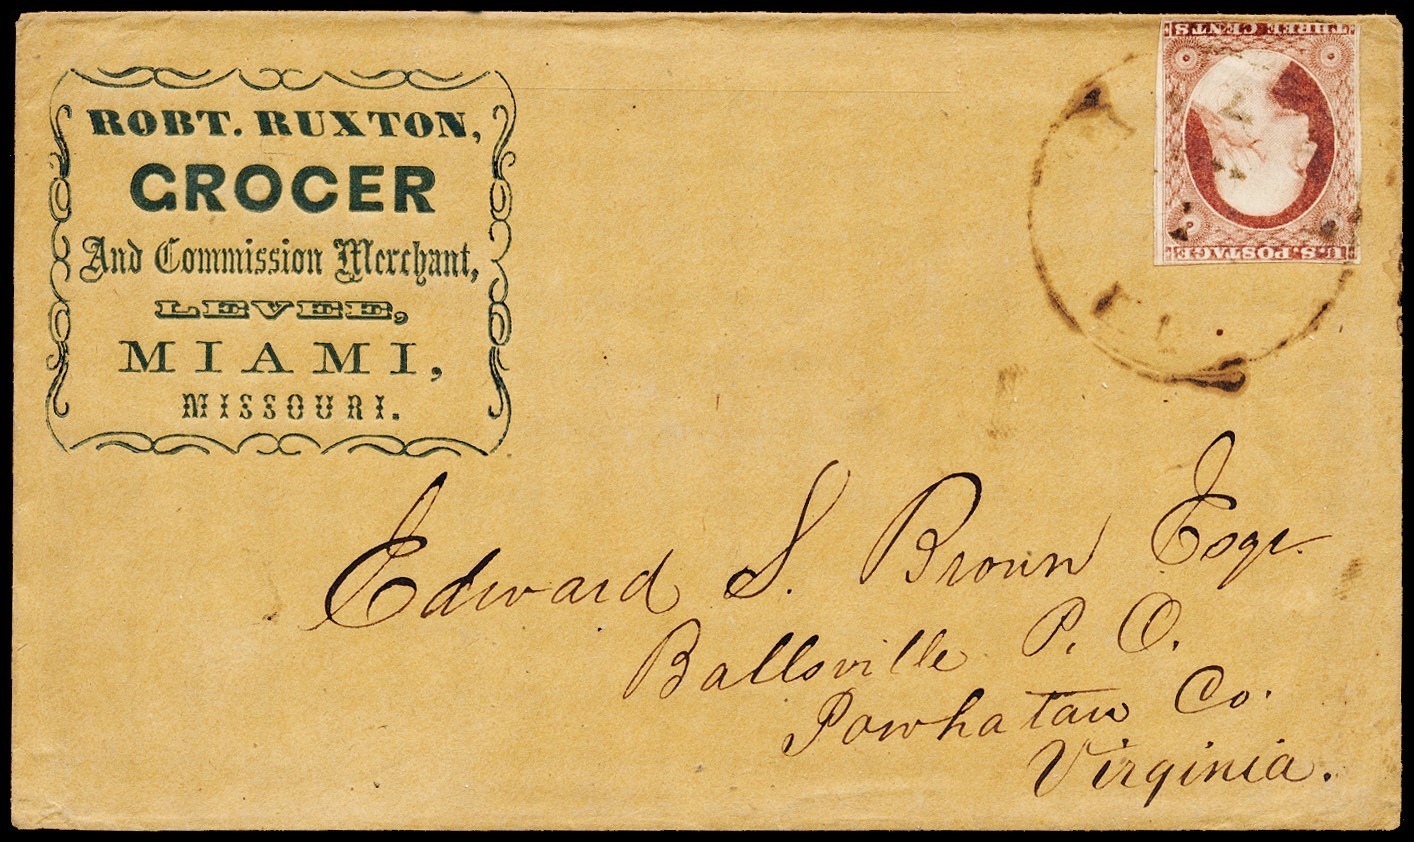 ROBT. RUXTON,
GROCER
And Commission Merchant,
LEVEE,
MIAMI,
MISSOURI.
THREE CENTS
U.S. POSTAGE
Edward S. Brown Esqr.
Ballsville P. O.
Powhatan Co.
Virginia.